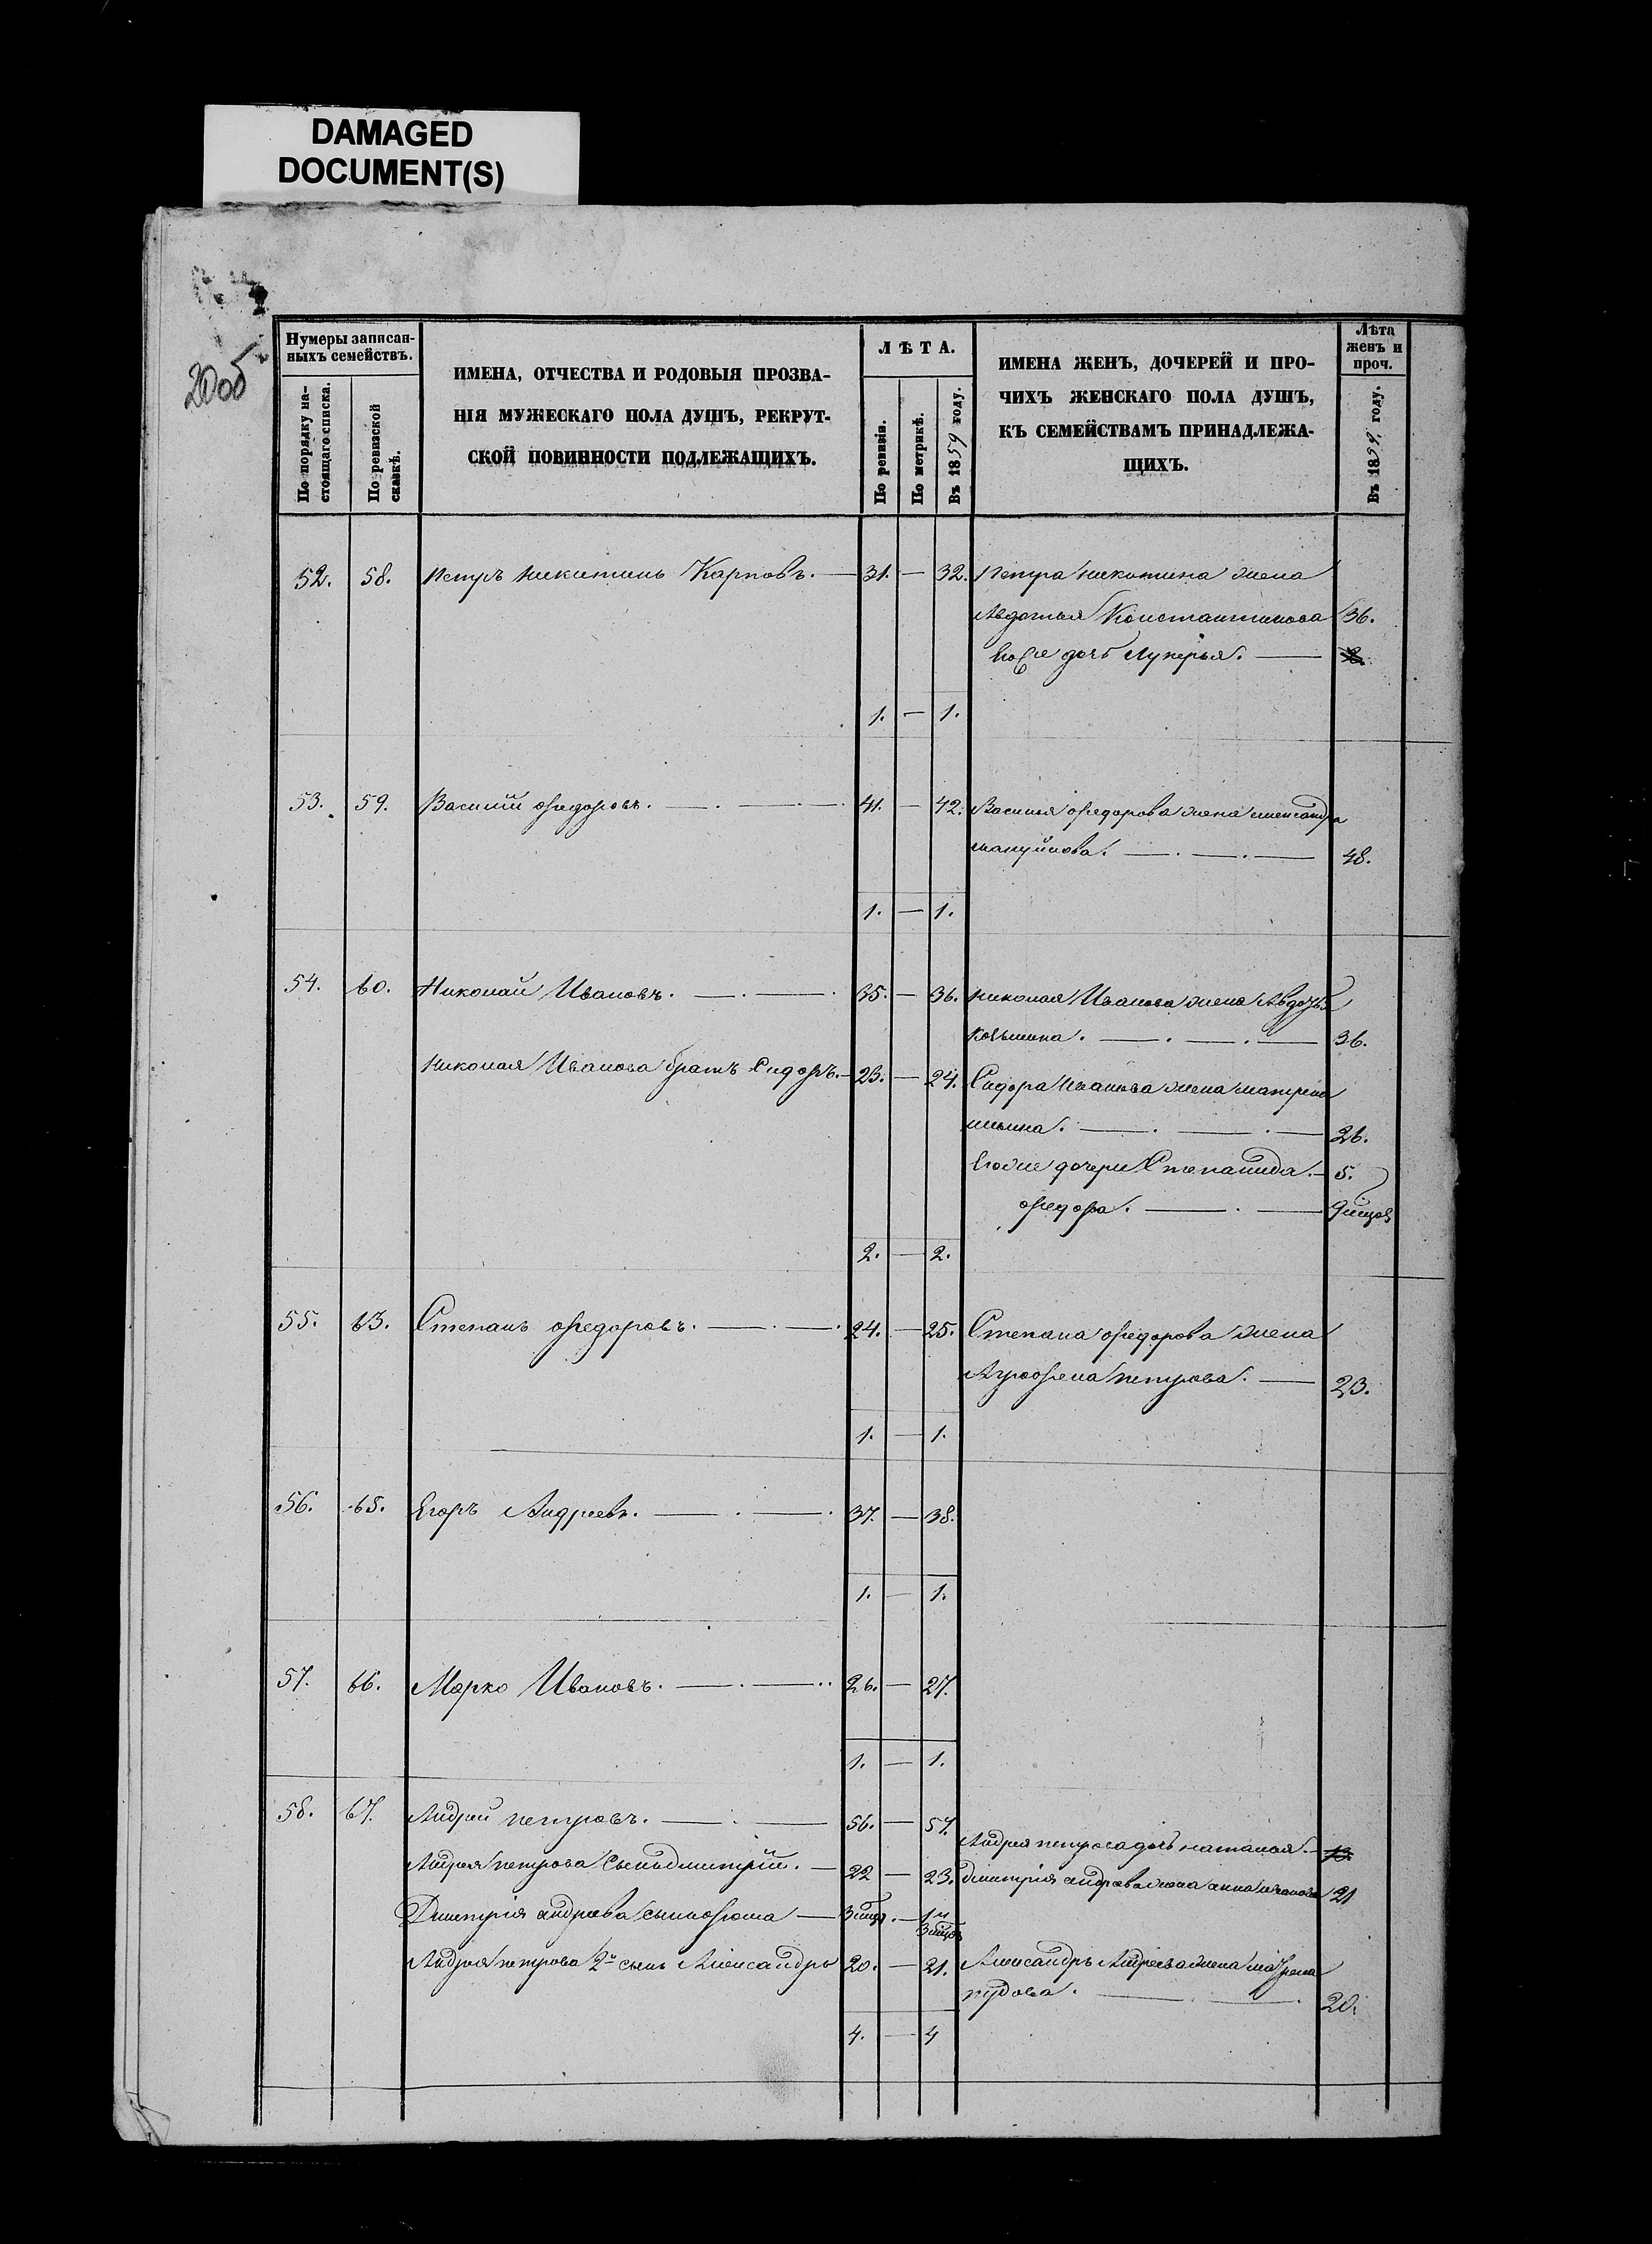 DAMAGED
DOCUMENT(S)
20об
Нумеры записан-
ныхъ семействъ.
По порядку на-
стоящаго списка.
По ревизской
сказкѣ.
ИМЕНА, ОТЧЕСТВА И РОДОВЫЯ ПРОЗВА-
НІЯ МУЖЕСКАГО ПОЛА ДУШЪ, РЕКРУТ-
СКОЙ ПОВИННОСТИ ПОДЛЕЖАЩИХЪ.
ЛѢТА.
По ревизіи.
По метрикѣ.
Въ 1859 году.
ИМЕНА ЖЕНЪ, ДОЧЕРЕЙ И ПРО-
ЧИХЪ ЖЕНСКАГО ПОЛА ДУШЪ,
КЪ СЕМЕЙСТВАМЪ ПРИНАДЛЕЖА-
ЩИХЪ.
Лѣта
женъ и
проч.
Въ 1859 году.
52. 58. Петръ Никитинъ Карповъ. — 31. — 32. Петра Никитина жена
Авдотья Константинова 36.
Его же дочь Лукерья. —
1. — 1.
53. 59. Василій Федоровъ. — 41. — 42. Василья Федорова жена Александра
Мануйлова. — 48.
1. — 1.
54. 60. Николай Ивановъ. — 35. — 36. Николая Иванова жена Авдотья
Козьмина. — 36.
Николая Иванова братъ Сидоръ. — 23. — 24. Сидора Иванова жена Матрена
Ильина. — 26.
Его же дочери Степанида. — 5.
Федора. — 9 мѣсяц
2. — 2.
55. 63. Степанъ Федоровъ. — 24. — 25. Степана Федорова жена
Агрофена Петрова. — 23.
1. — 1.
56. 65. Егоръ Андреевъ. — 37. — 38.
1. — 1.
57. 66. Марко Ивановъ. — 26. — 27.
1. — 1.
58. 67. Андрей Петровъ. — 56. — 57.
Андрея Петрова дочь Наталья. — 13.
Андрея Петрова сынъ Дмитрій. — 22 — 23. Дмитрія Андреева жена Анна Иванова 21
Дмитрія Андреева сынъ Фома — 3 мѣсяц. — 1 и
3 мѣсяц
Андрея Петрова 2й сынъ Александръ 20. — 21. Александръ Андреева жена Матрена
Пудова. — 20.
4. — 4